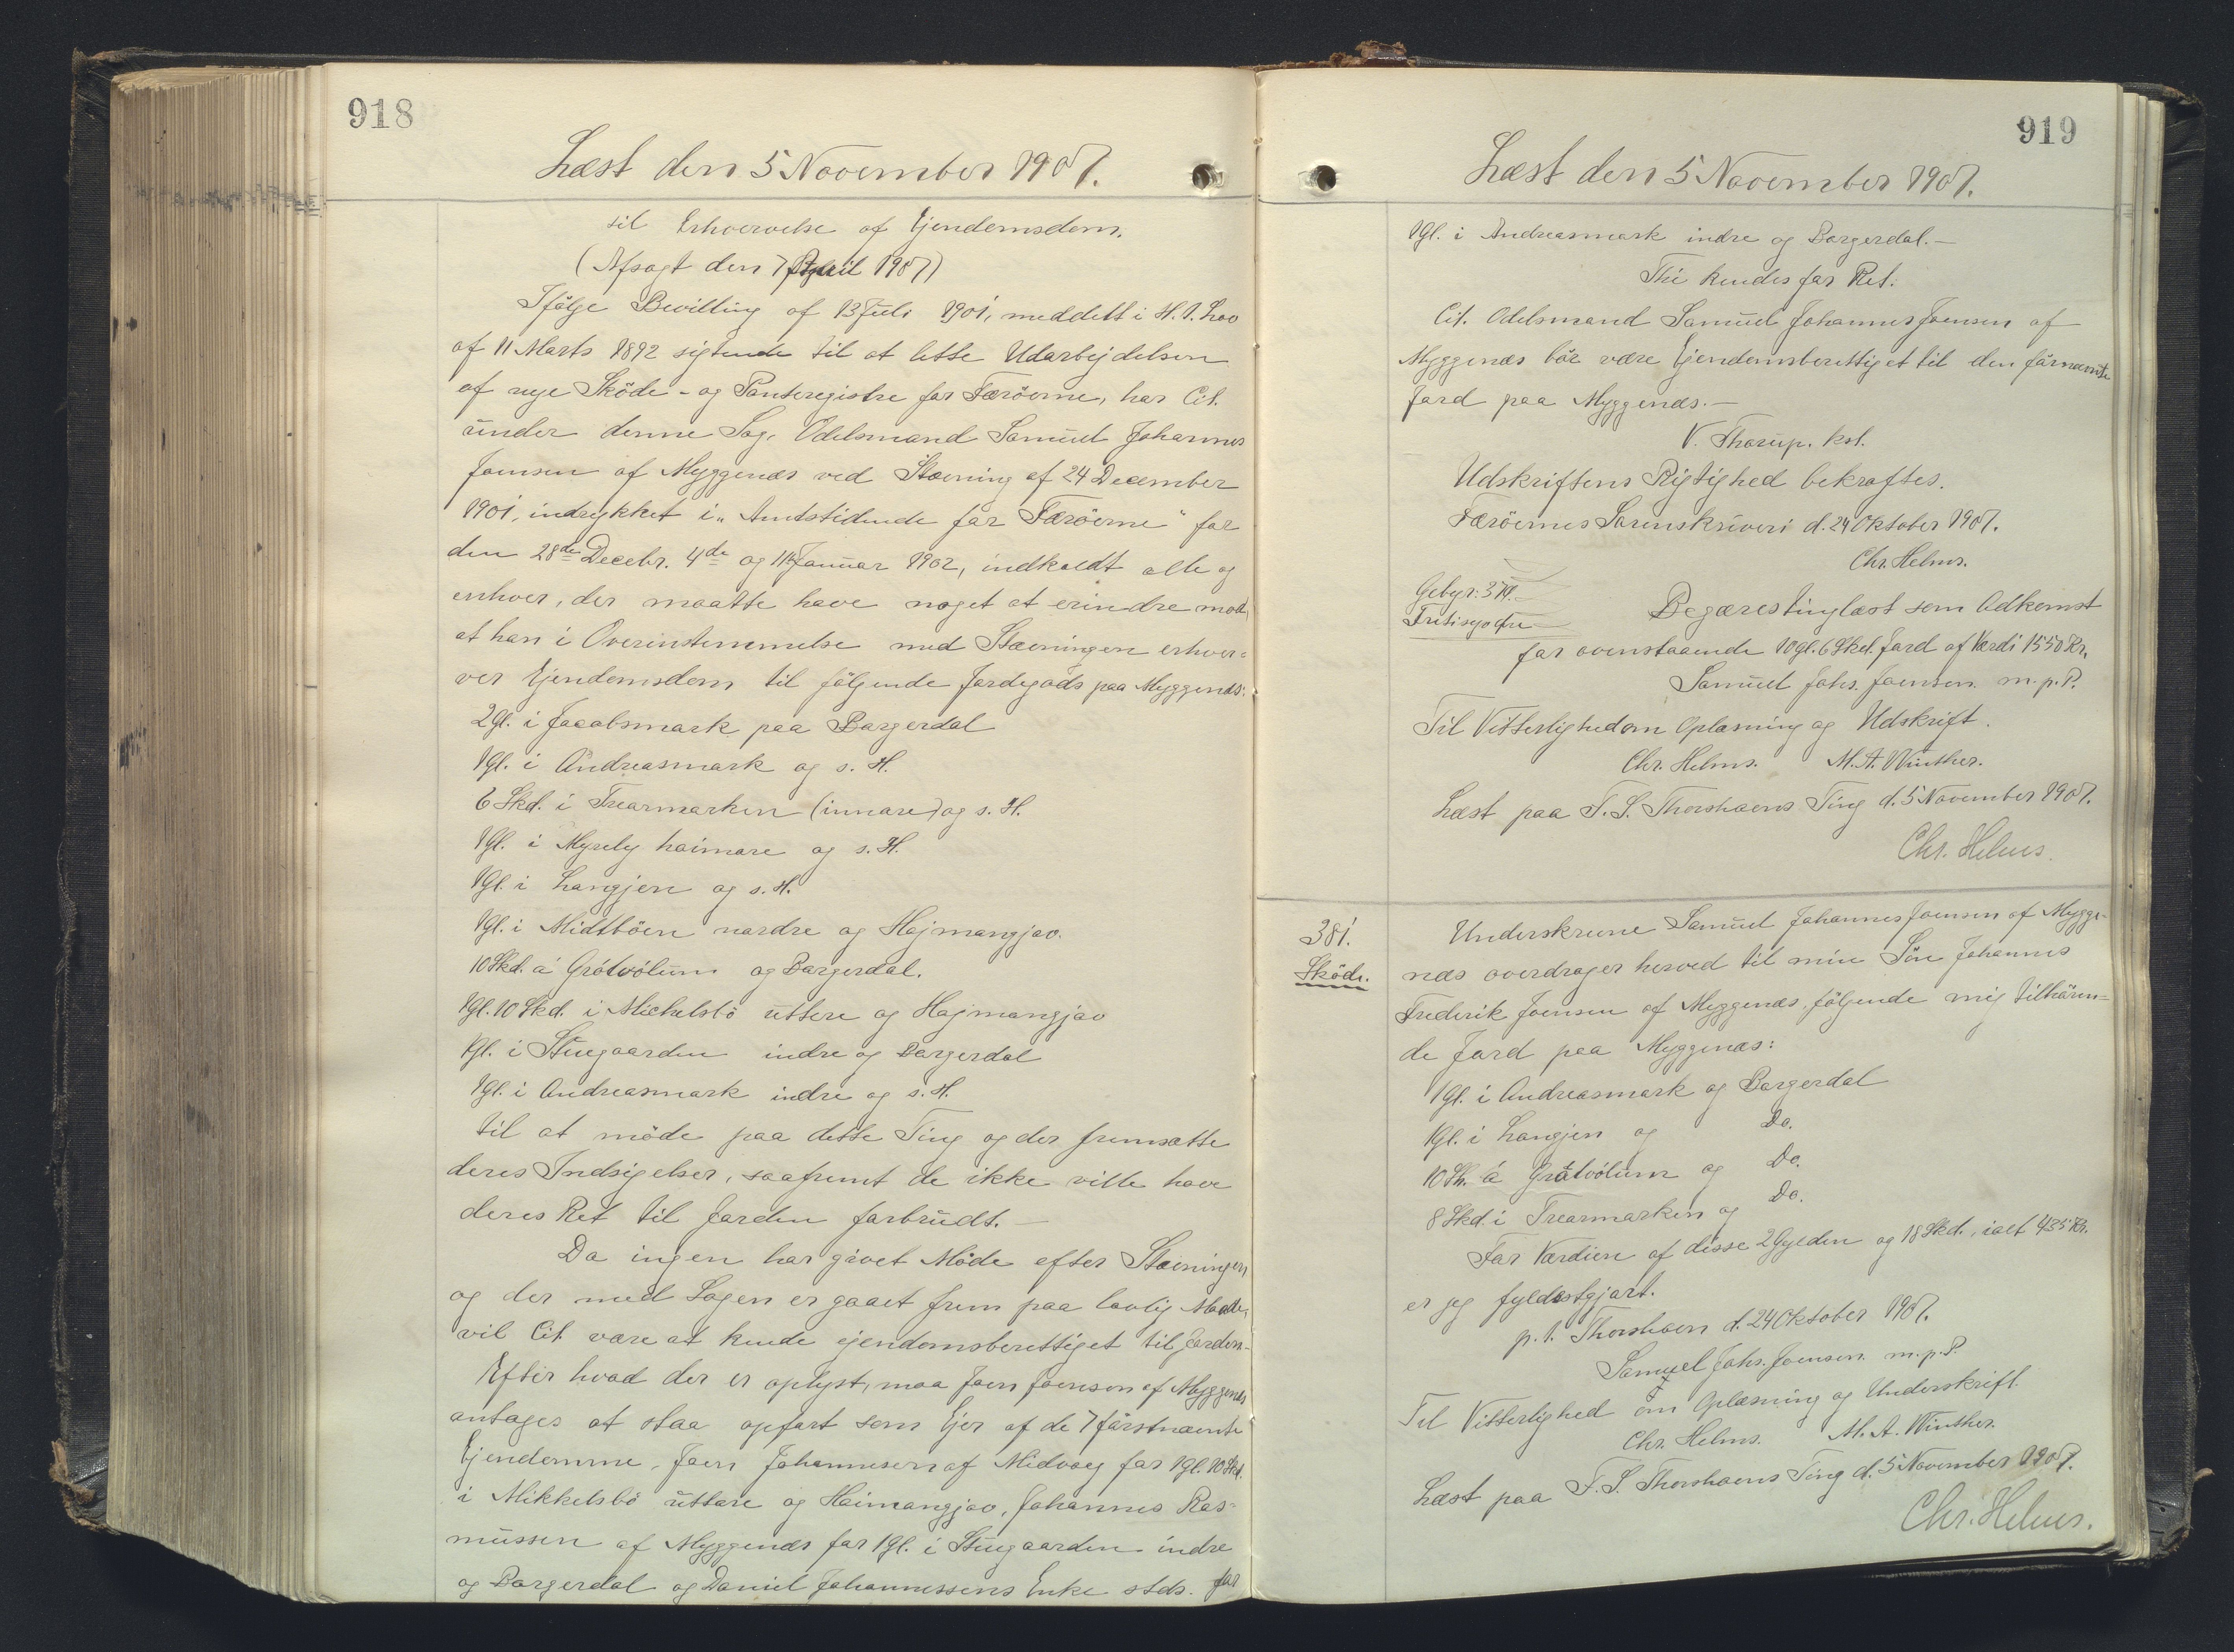 918
Læst den 5 November 1907.
til Erhvervelse af Ejendomsdom.
(Afsagt den 7 April 1907)
Ifölge Bevilling af 13 Juli 1901, meddelt i H. t. Lov
af 11 Marts 1892 sigtende til at lette Udarbejdelsen
af nye Sköde- og Panteregistre for Færöerne, har Cit.
under denne Sag, Odelsmand Samuel Johannes
Joensen af Myggenæs ved Stævning af 24 December
1901, indrykket i „Amtstidende for Færöerne" for
den 28de Decebr. 4de og 11te Januar 1902, indkaldt alle og
enhver, der maatte have noget at erindre mod,
at han i Overensstemmelse med Stævningen erhver=
ver Ejendomsdom til fölgende Jordegods paa Myggenæs:
2 Gl. i Jacobsmark paa Borgerdal
1 Gl. i Andreasmark og s. H.
6 Skd. i Trearmarken (innare) og s. H.
1 Gl. i Myrely haimare og s. H.
1 Gl. i Langjen og s. H.
1 Gl. i Midtböen nordre og Hajmangjov.
10 Skd. á Grótvólum og Borgerdal.
1 Gl. 10 Skd. i Michelsbö uttere og Hajmangjov
1 Gl. i Stuegaarden indre og Borgerdal
1 Gl. i Andreasmark indre og s. H.
til at möde paa dette Ting og der fremsætte
deres Indsigelser, saafremt de ikke ville have
deres Ret til Jorden forbrudt. —
Da ingen har givet Möde efter Stævningen,
og der med Sagen er gaaet frem paa lovlig Maade,
vil Cit. være at kende ejendomsberettiget til Jorden.
Efter hvad der er oplyst, maa Joen Joensen af Myggenæs
antages at staa opfört som Ejer af de 7 förstnævnte
Ejendomme, Joen Johannesen af Midvaag for 1 Gl. 10 Skd.
i Mikkelsbö uttare og Haimangjov, Johannes Ras=
mussen af Myggenæs for 1 Gl. i Stuegaarden indre
og Borgerdal og Daniel Johannessens Enke stds. for
919
Læst den 5 November 1907.
1 Gl. i Andreasmark indre og Borgerdal. —
Thi kendes for Ret:
Cit. Odelsmand Samuel Johannes Joensen af
Myggenæs bör være Ejendomsberettiget til den förnævnte
Jord paa Myggenæs. —
V. Thorup. kst.
Udskriftens Rigtighed bekræftes.
Færöernes Sorenskriveri d. 24 Oktober 1907.
Chr. Helms.
Gebyr: 3 Kr.
Begæres tinglæst som Adkomst
for ovenstaaende 10 Gl. 6 Skd. Jord af Værdi 1550 Kr.
Samuel Johs. Joensen m. p. P.
Til Vitterlighed om Oplæsning og Udskrift.
Chr. Helms. M. A. Winther.
Læst paa T. S. Thorshavns Ting d. 5 November 1907.
Chr. Helms.
381.
Sköde.
Underskrevne Samuel Johannes Joensen af Mygge-
næs overdrager herved til min Sön Johannes
Frederik Joensen af Myggenæs, fölgende mig tilhören=
de Jord paa Myggenæs:
1 Gl. i Andreasmark og Borgerdal
1 Gl. i Langjen og Do.
10 Sk. á Grótvólum og Do.
8 Skd. i Trearmarken og Do.
For Værdien af disse 2 Gylden og 18 Skd., ialt 435 Kr.
er jeg fyldestgjort.
p. t. Thorshavn d. 24 Oktober 1907.
Samuel Johs. Joensen m. p. P.
Til Vitterlighed om Oplæsning og Underskrift.
Chr. Helms. M. A. Winther.
Læst paa T. S. Thorshavns Ting d. 5 November 1907.
Chr. Helms.